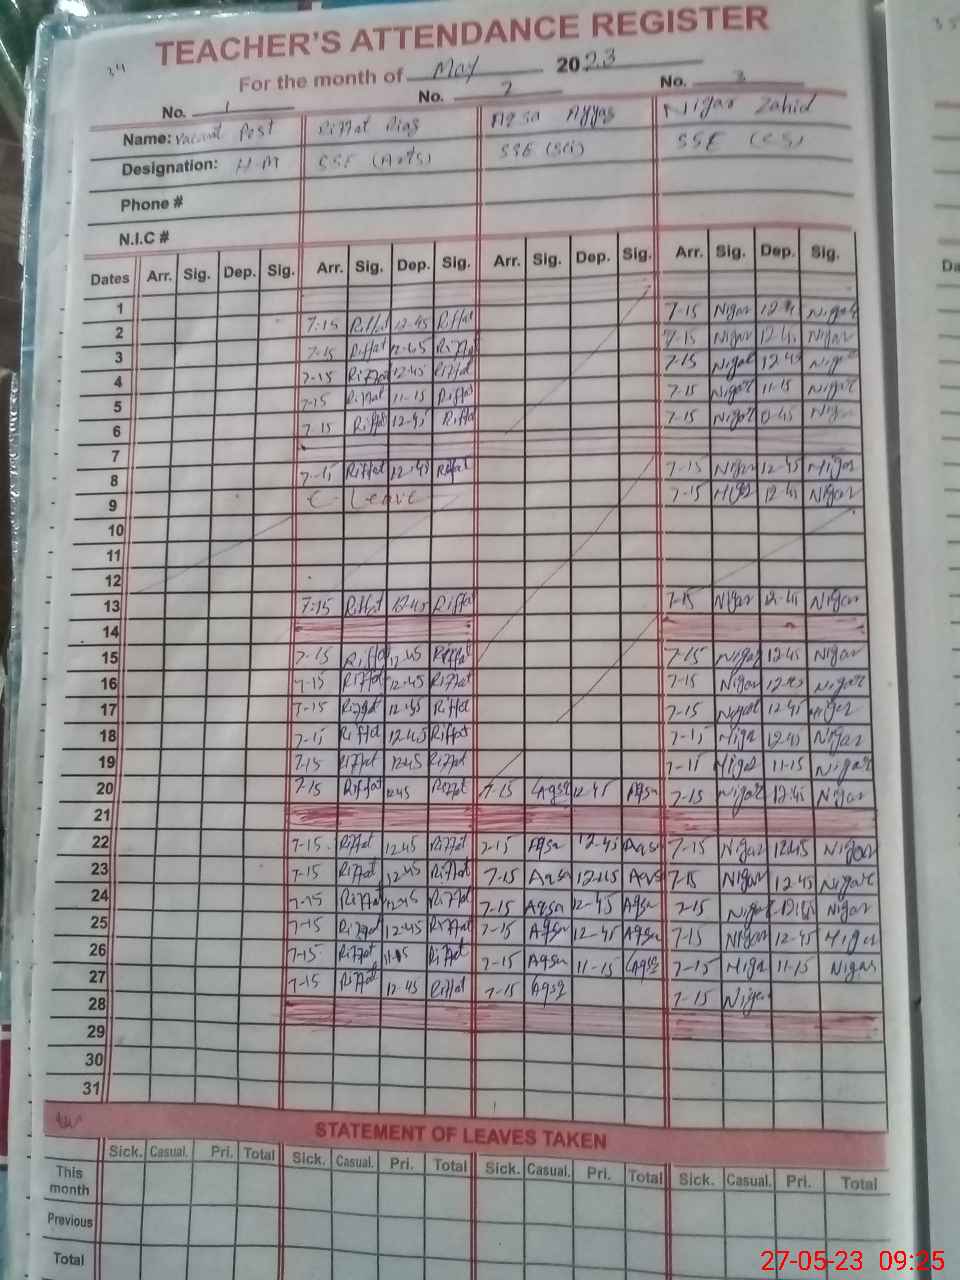 34
TEACHER'S ATTENDANCE REGISTER
For the month of May 2023
No. 1 No. 2 No. 3
Name: Vacant Post Riffat Riaz Aqsa Nigar Zahid
Designation: H.M SSE (Arts) SSE (Sci) SSE (CS)
Phone #
N.I.C #
Dates Arr. Sig. Dep. Sig. Arr. Sig. Dep. Sig. Arr. Sig. Dep. Sig. Arr. Sig. Dep. Sig.
1 7-15 Nigar 12-45 Nigar
2 7:15 Riffat 12-45 Riffat 7-15 Nigar 12-45 Nigar
3 7-15 Riffat 12-45 Riffat 7-15 Nigar 12-45 Nigar
4 7-15 Riffat 12-45 Riffat 7-15 Nigar 11-15 Nigar
5 7-15 Riffat 11-15 Riffat 7-15 Nigar Nigar
6 7-15 Riffat 12-45 Riffat
7
8 7-15 Riffat 12-45 Riffat 7-15 Nigar 12-45 Nigar
9 C-Leave 7-15 Nigar 12-45 Nigar
10
11
12
13 7:15 Riffat 12-45 Riffat 7-15 Nigar 12-45 Nigar
14
15 7-15 Riffat 12-45 Riffat 7-15 Nigar 12-45 Nigar
16 7-15 Riffat 12-45 Riffat 7-15 Nigar 12-45 Nigar
17 7-15 Riffat 12-45 Riffat 7-15 Nigar 12-45 Nigar
18 7-15 Riffat 12-45 Riffat 7-15 Nigar 12-45 Nigar
19 7-15 Riffat 12-45 Riffat 7-15 Nigar 11-15 Nigar
20 7-15 Riffat 12-45 Riffat 7-15 Aqsa 12-45 Aqsa 7-15 Nigar 12-45 Nigar
21
22 7-15 Riffat 12-45 Riffat 7-15 Aqsa 12-45 Aqsa 7-15 Nigar 12-45 Nigar
23 7-15 Riffat 12-45 Riffat 7-15 Aqsa 12-45 Aqsa 7-15 Nigar 12-45 Nigar
24 7-15 Riffat 12-45 Riffat 7-15 Aqsa 12-45 Aqsa 7-15 Nigar Nigar
25 7-15 Riffat 12-45 Riffat 7-15 Aqsa 12-45 Aqsa 7-15 Nigar 12-45 Nigar
26 7-15 Riffat 11-15 Riffat 7-15 Aqsa 11-15 Aqsa 7-15 Nigar 11-15 Nigar
27 7-15 Riffat 12-45 Riffat 7-15 Aqsa 7-15 Nigar
28
29
30
31
STATEMENT OF LEAVES TAKEN
Sick. Casual. Pri. Total Sick. Casual. Pri. Total Sick. Casual. Pri. Total Sick. Casual. Pri. Total
This month
Previous
Total
27-05-23 09:25